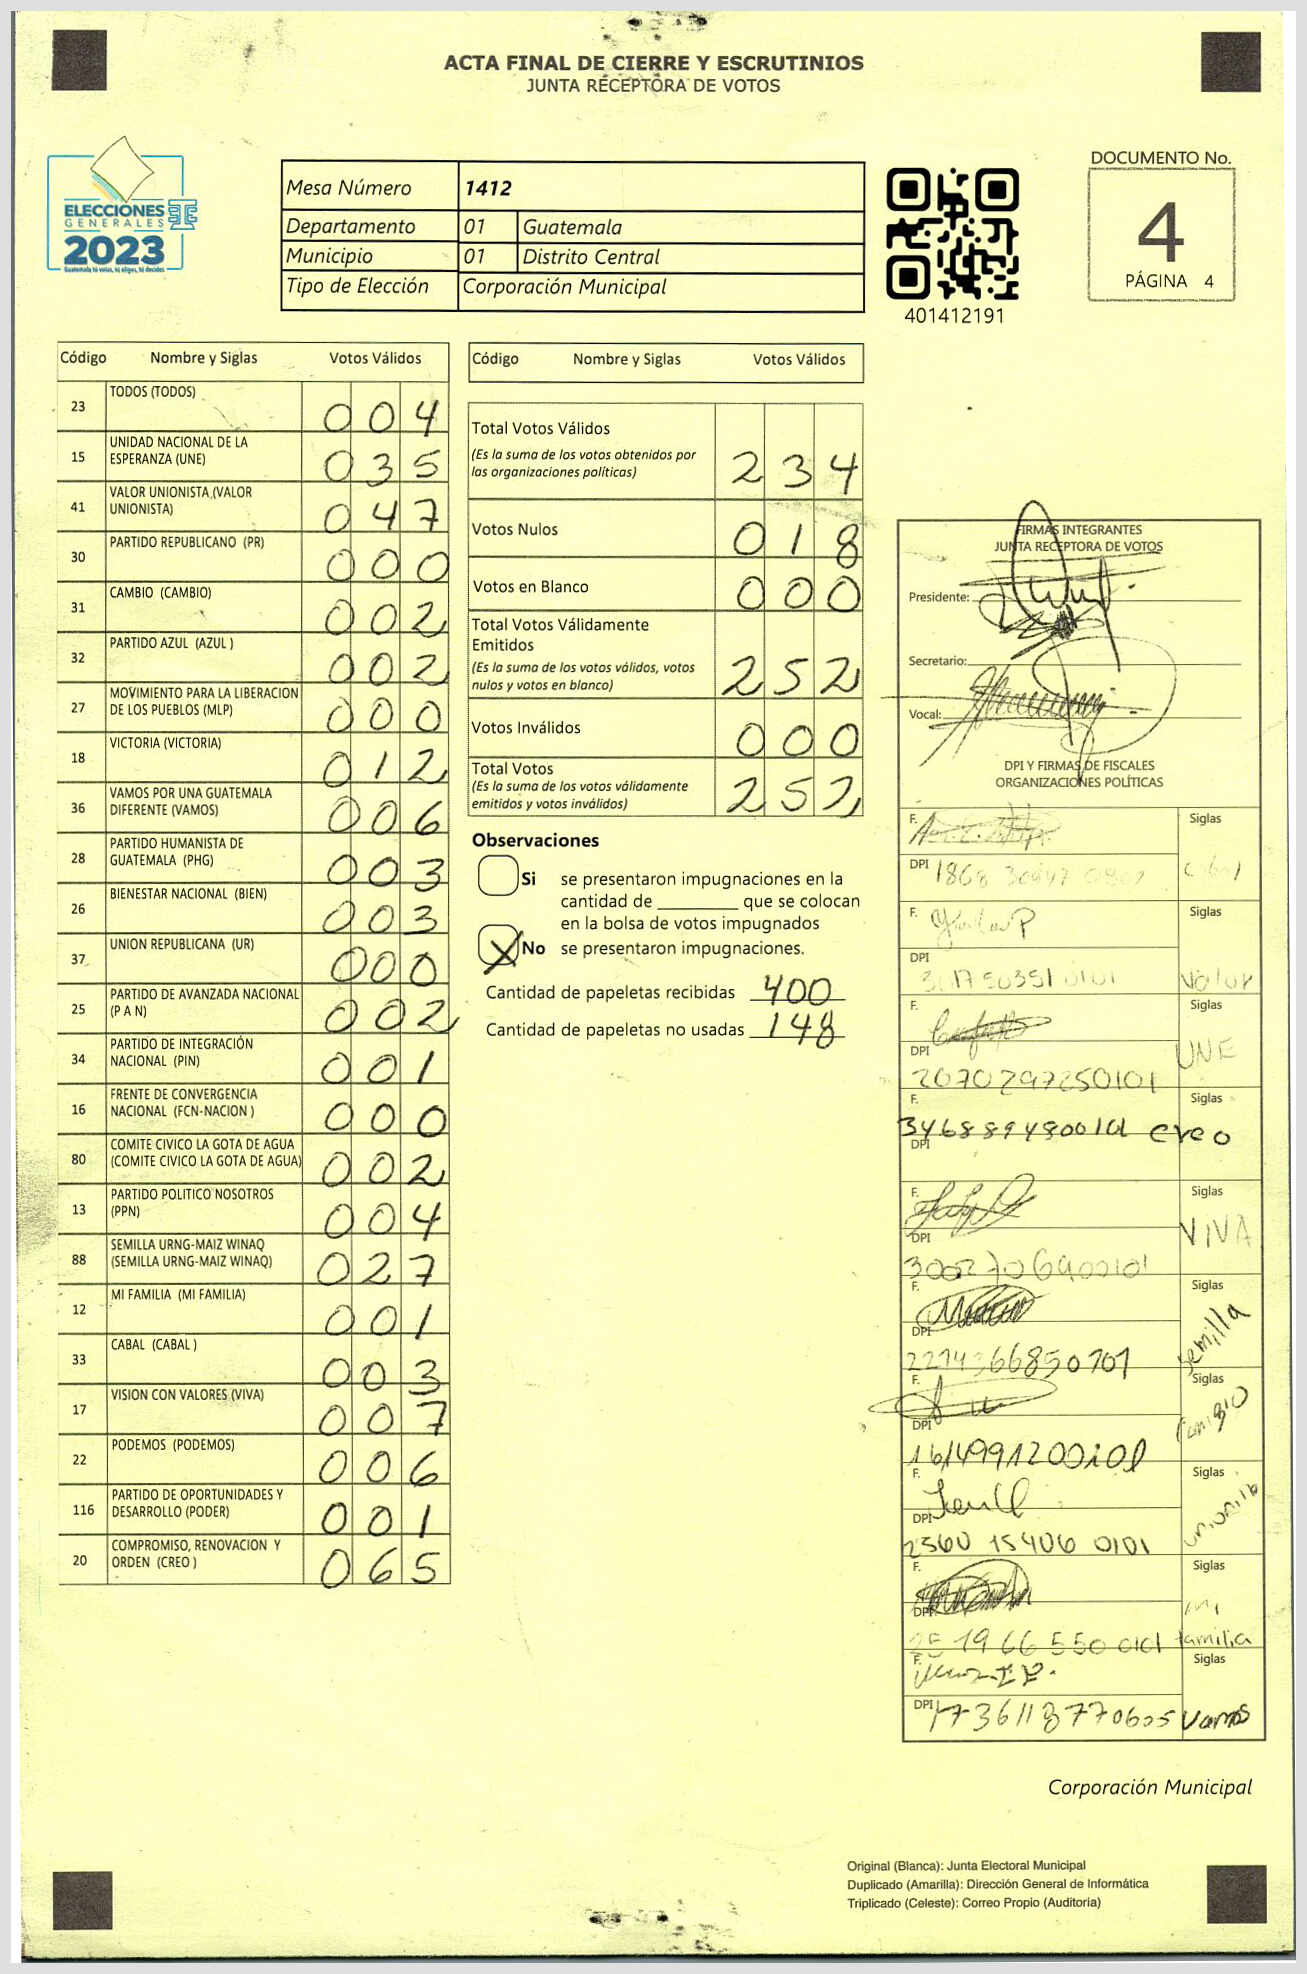 ACTA FINAL DE CIERRE Y ESCRUTINIOS
JUNTA RECEPTORA DE VOTOS
ELECCIONES
GENERALES
2023
Guatemala tú votas, tú eliges, tú decides
Mesa Número 1412
Departamento 01 Guatemala
Municipio 01 Distrito Central
Tipo de Elección Corporación Municipal
401412191
DOCUMENTO No.
4
PÁGINA 4
Código Nombre y Siglas Votos Válidos
23 TODOS (TODOS) 004
15 UNIDAD NACIONAL DE LA
ESPERANZA (UNE) 035
41 VALOR UNIONISTA (VALOR
UNIONISTA) 047
30 PARTIDO REPUBLICANO (PR) 000
31 CAMBIO (CAMBIO) 002
32 PARTIDO AZUL (AZUL ) 002
27 MOVIMIENTO PARA LA LIBERACION
DE LOS PUEBLOS (MLP) 000
18 VICTORIA (VICTORIA) 012
36 VAMOS POR UNA GUATEMALA
DIFERENTE (VAMOS) 006
28 PARTIDO HUMANISTA DE
GUATEMALA (PHG) 003
26 BIENESTAR NACIONAL (BIEN) 003
37 UNION REPUBLICANA (UR) 000
25 PARTIDO DE AVANZADA NACIONAL
(P A N) 002
34 PARTIDO DE INTEGRACIÓN
NACIONAL (PIN) 001
16 FRENTE DE CONVERGENCIA
NACIONAL (FCN-NACION ) 000
80 COMITE CIVICO LA GOTA DE AGUA
(COMITE CIVICO LA GOTA DE AGUA) 002
13 PARTIDO POLITICO NOSOTROS
(PPN) 004
88 SEMILLA URNG-MAIZ WINAQ
(SEMILLA URNG-MAIZ WINAQ) 027
12 MI FAMILIA (MI FAMILIA) 001
33 CABAL (CABAL ) 003
17 VISION CON VALORES (VIVA) 007
22 PODEMOS (PODEMOS) 006
116 PARTIDO DE OPORTUNIDADES Y
DESARROLLO (PODER) 001
20 COMPROMISO, RENOVACION Y
ORDEN (CREO ) 065
Código Nombre y Siglas Votos Válidos
Total Votos Válidos
(Es la suma de los votos obtenidos por
las organizaciones políticas) 234
Votos Nulos 018
Votos en Blanco 000
Total Votos Válidamente
Emitidos
(Es la suma de los votos válidos, votos
nulos y votos en blanco) 252
Votos Inválidos 000
Total Votos
(Es la suma de los votos válidamente
emitidos y votos inválidos) 252
Observaciones
Si se presentaron impugnaciones en la
cantidad de ________ que se colocan
en la bolsa de votos impugnados
X No se presentaron impugnaciones.
Cantidad de papeletas recibidas 400
Cantidad de papeletas no usadas 148
FIRMAS INTEGRANTES
JUNTA RECEPTORA DE VOTOS
Presidente:
Secretario:
Vocal:
DPI Y FIRMAS DE FISCALES
ORGANIZACIONES POLÍTICAS
F. Siglas
DPI
F. Siglas
DPI valor
F. Siglas
DPI UNE
2070297250101
F. Siglas
3468894800101 creo
DPI
F. Siglas
DPI VIVA
F. Siglas
DPI Semilla
2274366850101
F. Siglas
DPI
F. Siglas
DPI unionista
2360 15406 0101
F. Siglas
DPI mi
25 19 66 550 0101 familia
F. Siglas
DPI 1736118770605 vamos
Corporación Municipal
Original (Blanca): Junta Electoral Municipal
Duplicado (Amarilla): Dirección General de Informática
Triplicado (Celeste): Correo Propio (Auditoría)